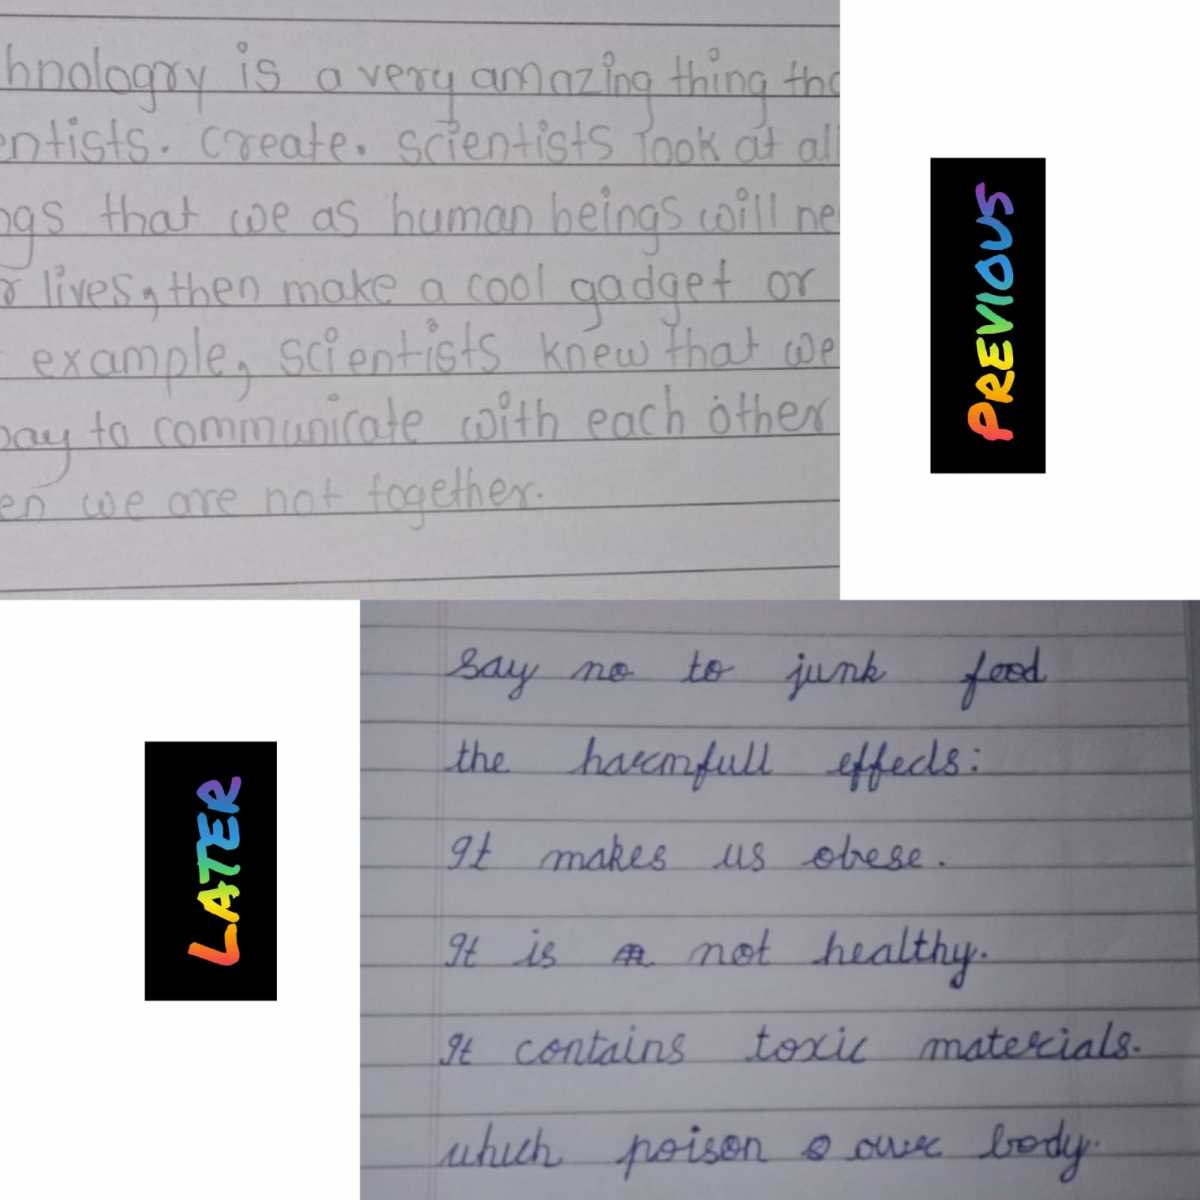 hnology is a very amazing thing tha
entists. Create. scientists look at all
ngs that we as human beings will ne
r lives, then make a cool gadget or
example, scientists knew that we
way to communicate with each other
en we are not together.
PREVIOUS
say no to junk food
the harmfull effects:
It makes us obese.
It is not healthy.
It contains toxic materials.
which poison our body.
LATER